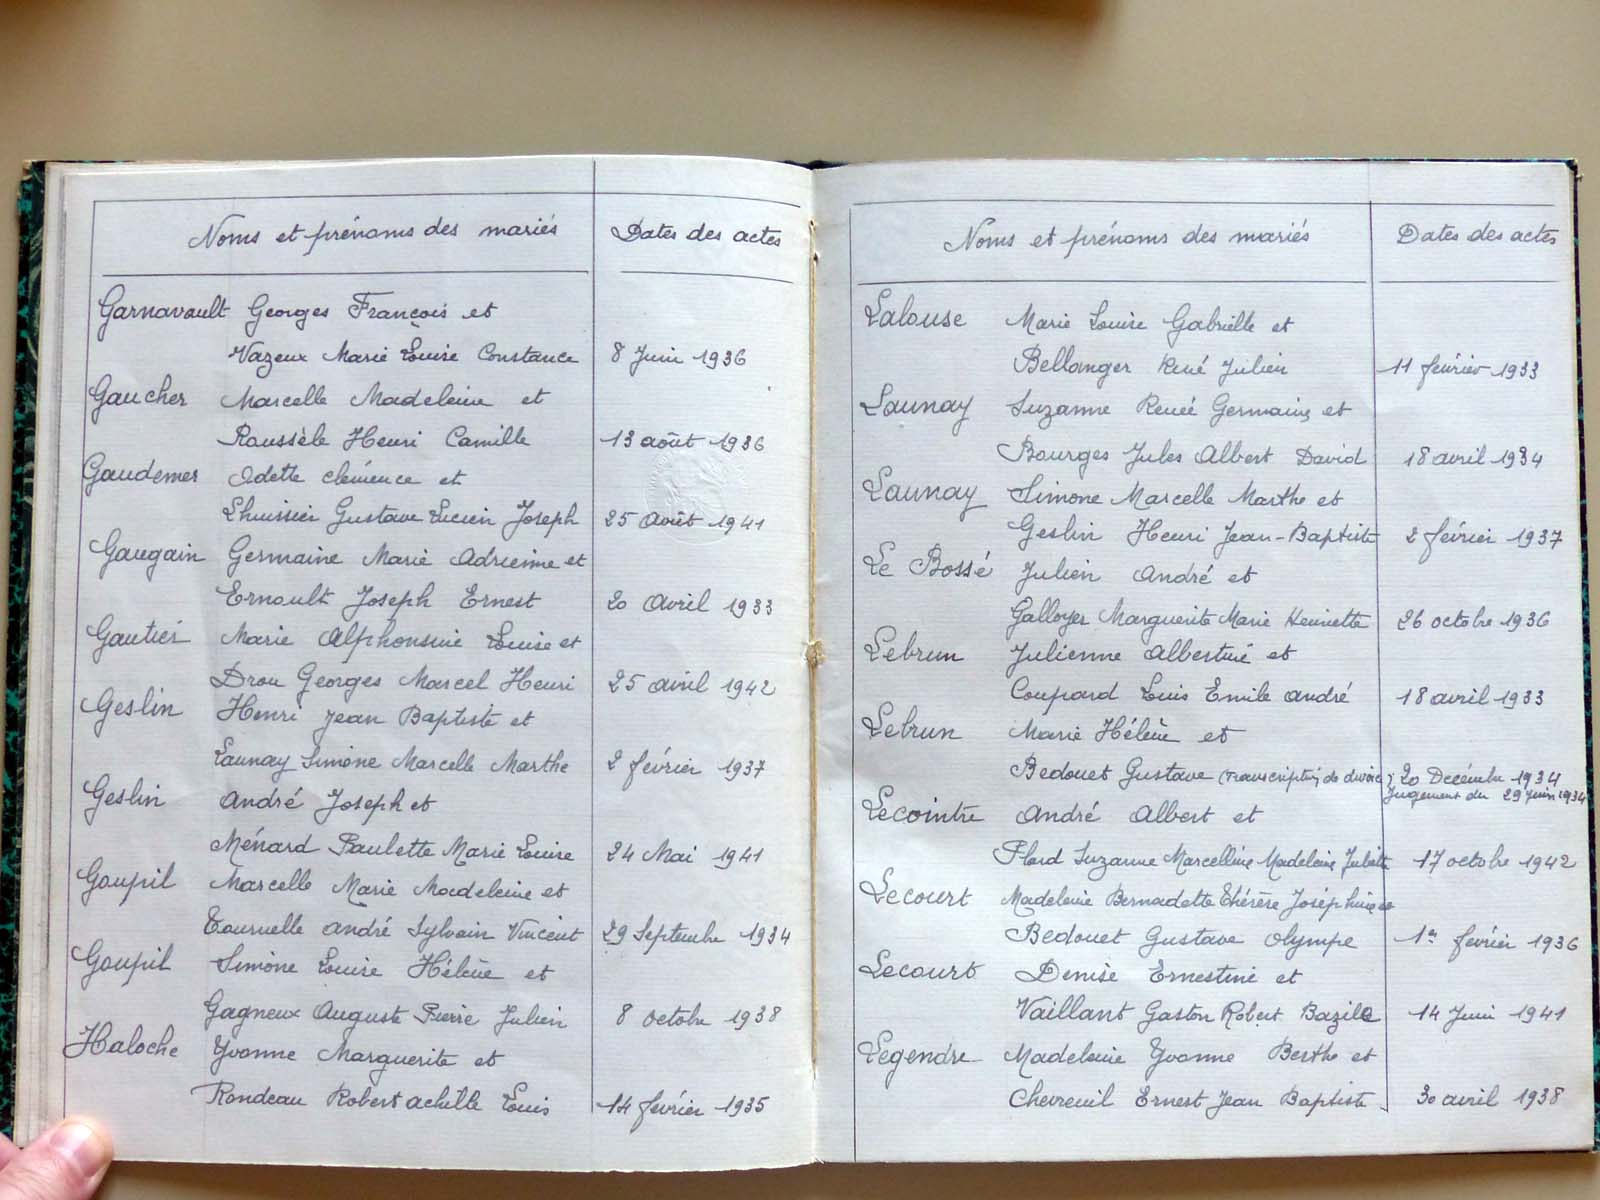 Noms et prénoms des mariés Dates des actes
Garnavault Georges François et
Vazeux Marie Louise Constance 8 Juin 1936
Gaucher Marcelle Madeleine et
Roussèle Henri Camille 13 août 1936
Gaudemer Odette clémence et
Lhuissier Gustave Lucien Joseph 25 Août 1941
Gaugain Germaine Marie Adrienne et
Ernoult Joseph Ernest 20 Avril 1933
Gautier Marie Alphonsine Louise et
Drou Georges Marcel Henri 25 avril 1942
Geslin Henri Jean Baptiste et
Launay Simone Marcelle Marthe 2 février 1937
Geslin André Joseph et
Ménard Paulette Marie Louise 24 Mai 1941
Goupil Marcelle Marie Madeleine et
Tournelle André Sylvain Vincent 29 Septembre 1934
Goupil Simone Louise Hélène et
Gagneux Auguste Pierre Julien 8 octobre 1938
Haloche Yvonne Marguerite et
Rondeau Robert achille Louis 14 février 1935
Noms et prénoms des mariés Dates des actes
Lalouse Marie Louise Gabrielle et
Bellanger René Julien 11 février 1933
Launay Suzanne Renée Germaine et
Bourges Jules Albert David 18 avril 1934
Launay Simone Marcelle Marthe et
Geslin Henri Jean-Baptiste 2 février 1937
Le Bossé Julien André et
Galloyer Marguerite Marie Henriette 26 octobre 1936
Lebrun Julienne Albertine et
Coupard Louis Emile André 18 avril 1933
Lebrun Marie Hélène et
Bedouet Gustave (transcription de divorce) 20 Décembre 1934
Jugement du 29 juin 1934
Lecointre André Albert et
Flard Suzanne Marcelline Madeleine Juliette 17 octobre 1942
Lecourt Madeleine Bernadette Thérèse Joséphine et
Bedouet Gustave Olympe 1er février 1936
Lecourt Denise Ernestine et
Vaillant Gaston Robert Bazile 14 Juin 1941
Legendre Madeleine Yvonne Berthe et
Chevreuil Ernest Jean Baptiste 30 avril 1938